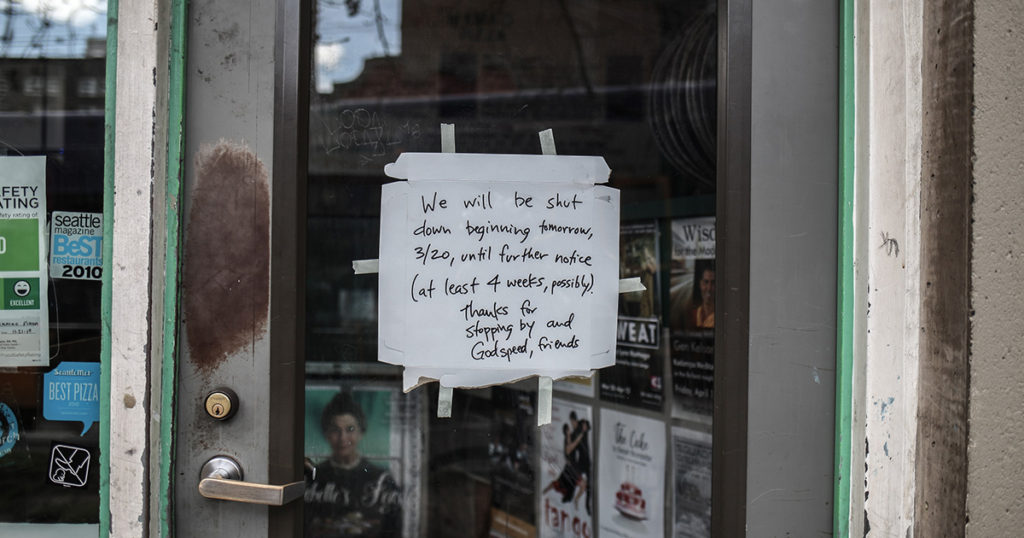 We will be shut
down beginning tomorrow,
3/20, until further notice
(at least 4 weeks, possibly).
Thanks for
stopping by and
Godspeed, friends
AFETY
ATING
fety rating of
EXCELLENT
seattle
magazine
BeST
restaurants
2010
BEST PIZZA
WEAT
Wis
for the Mod
The Cake
tang